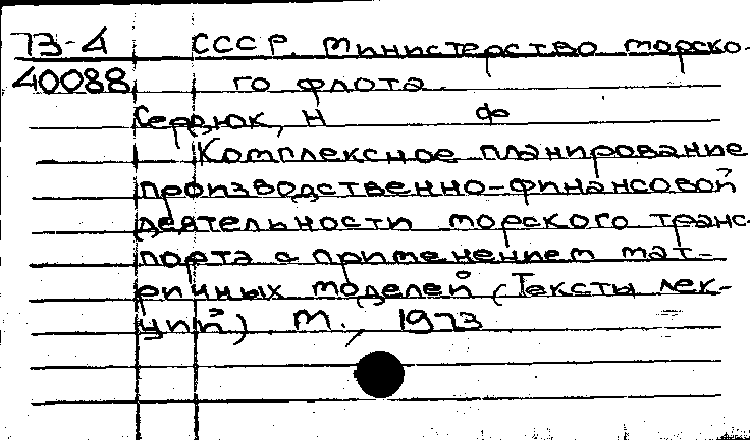 73-4 СССР. Министерство морско-
40088 го флота.
Сердюк, Н Ф
Комплексное планирование
производственно-финансовой
деятельности морского транс-
порта с применением мат-
ричных моделей (Тексты лек-
ций). М., 1973